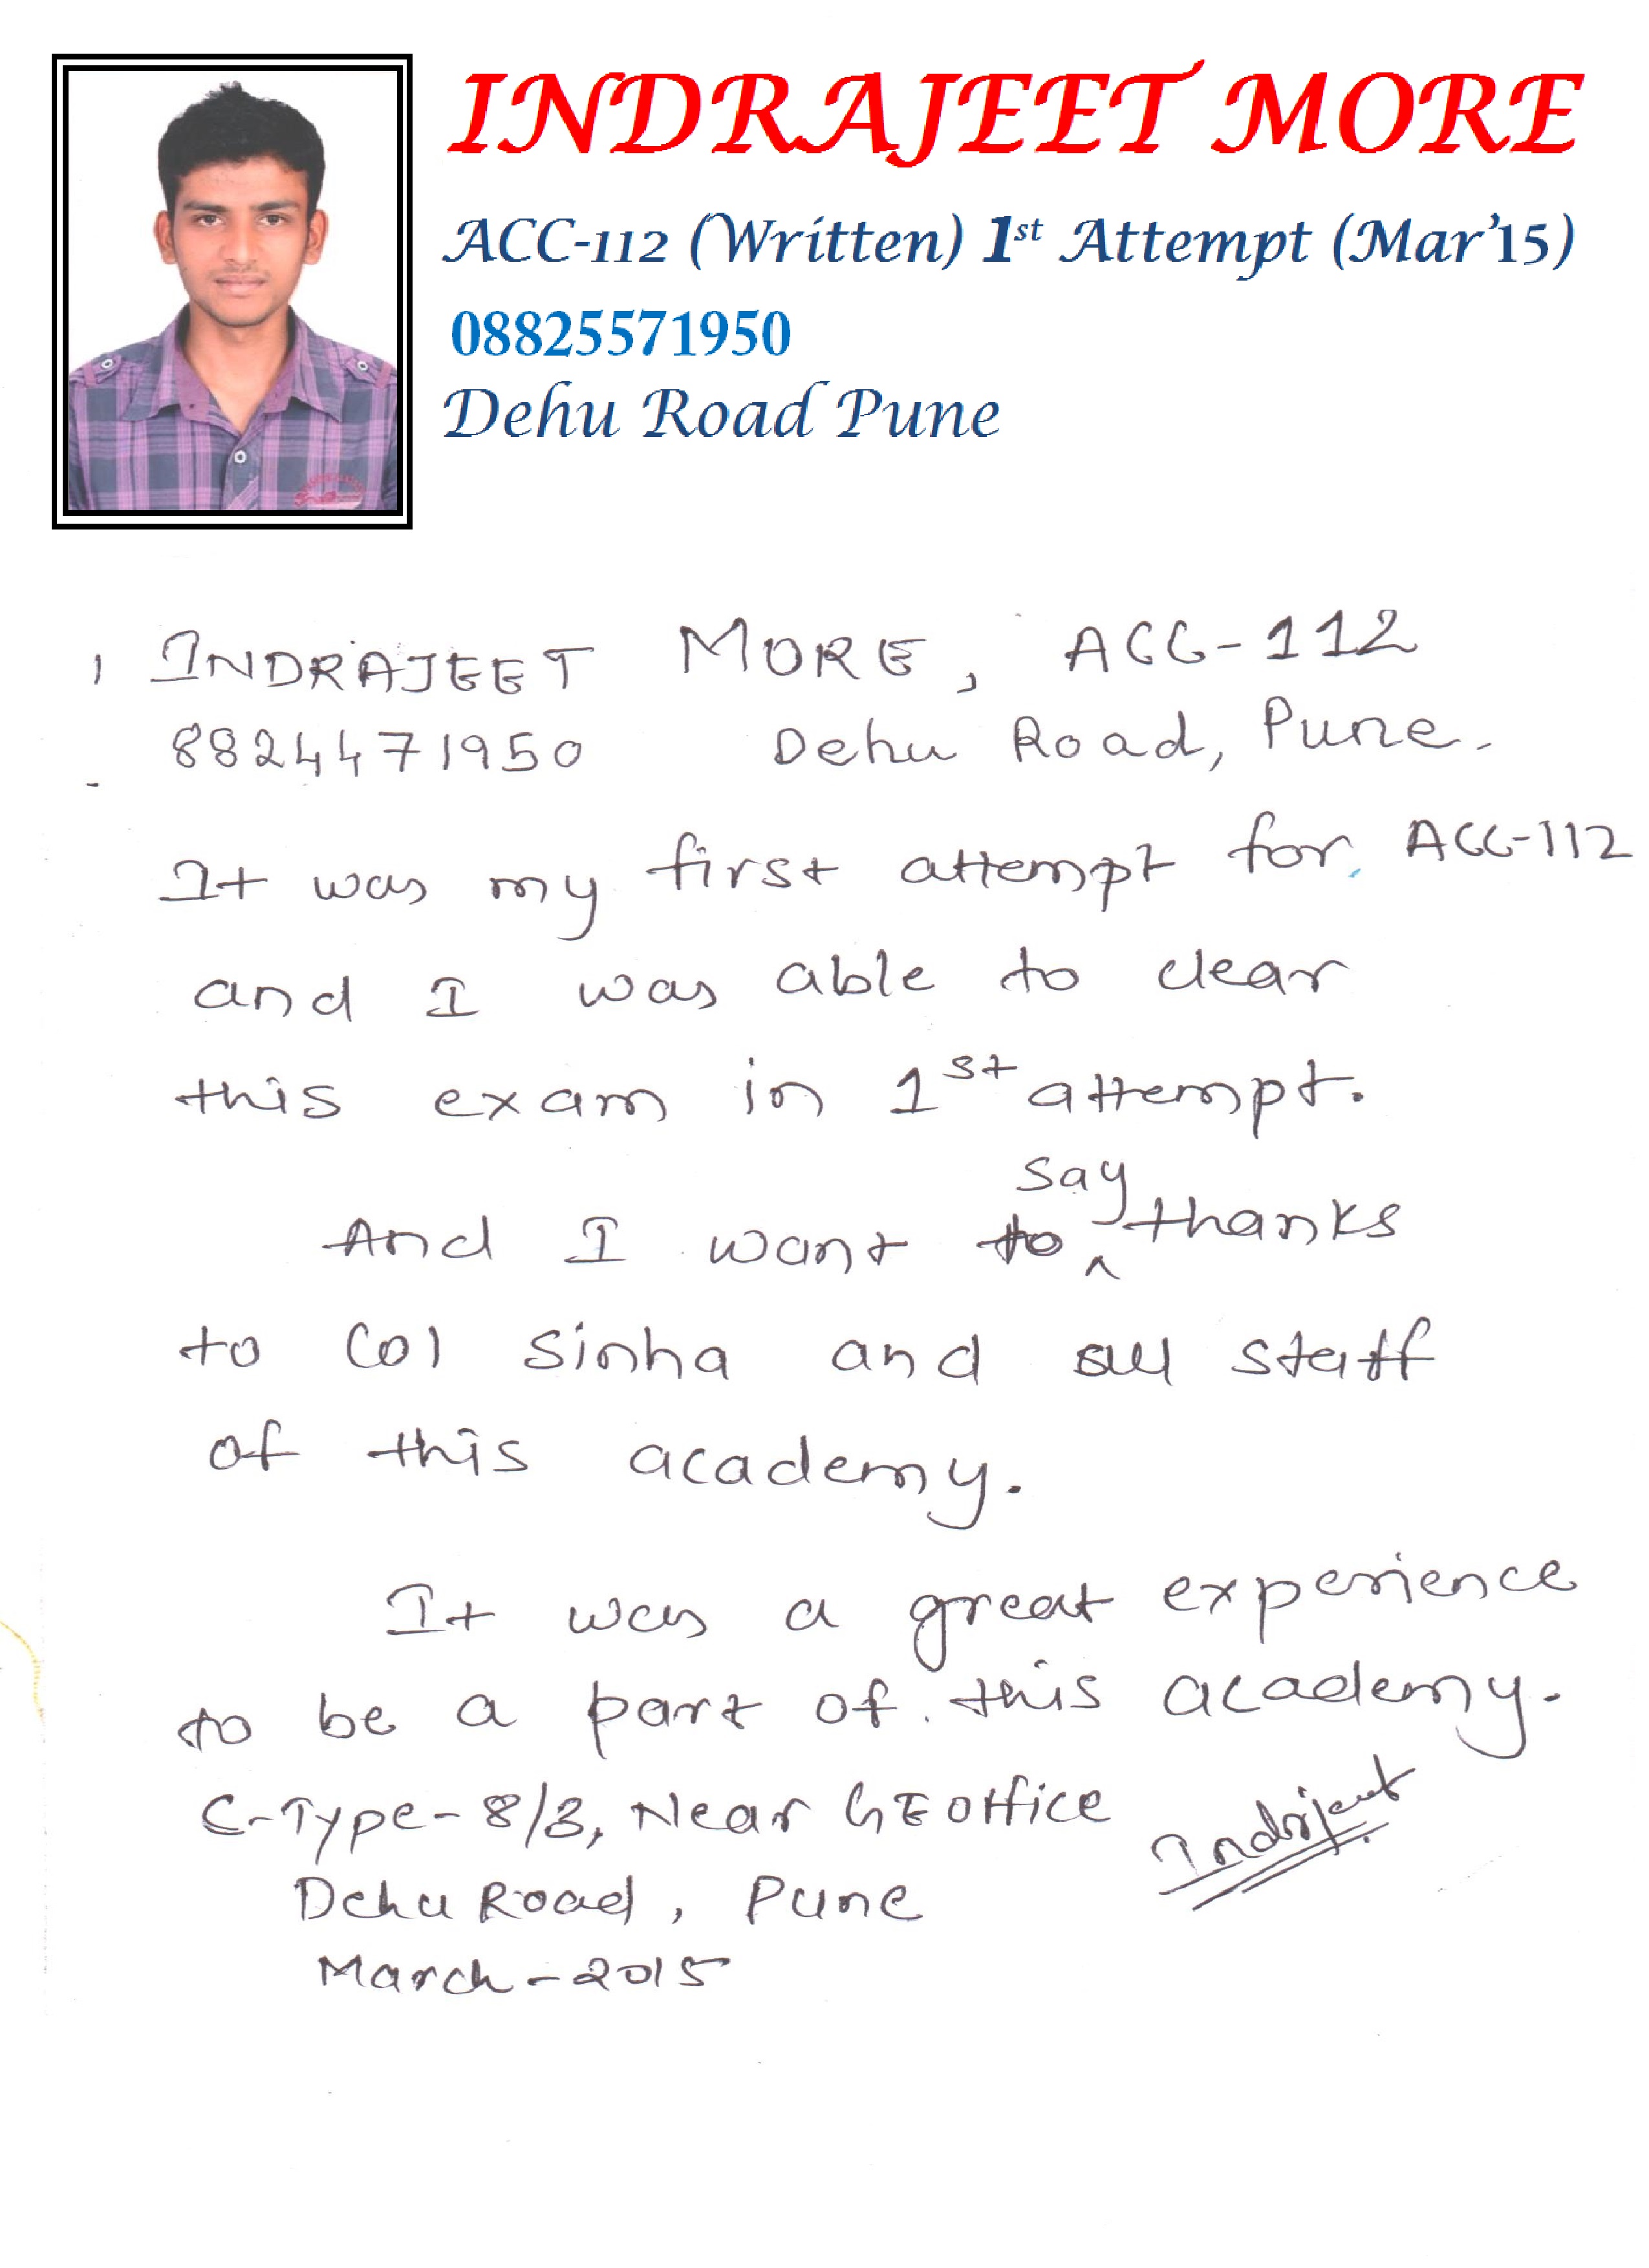 INDRAJEET MORE
ACC-112 (Written) 1st Attempt (Mar'15)
08825571950
Dehu Road Pune
, INDRAJEET MORE, ACC-112
8824471950 Dehu Road, Pune.
It was my first attempt for ACC-112
and I was able to clear
this exam in 1st attempt.
And I want to say thanks
to Col Sinha and all staff
of this academy.
It was a great experience
to be a part of this academy.
C-Type-8/3, Near GE Office
Indrjeet
Dehu Road, Pune
March-2015